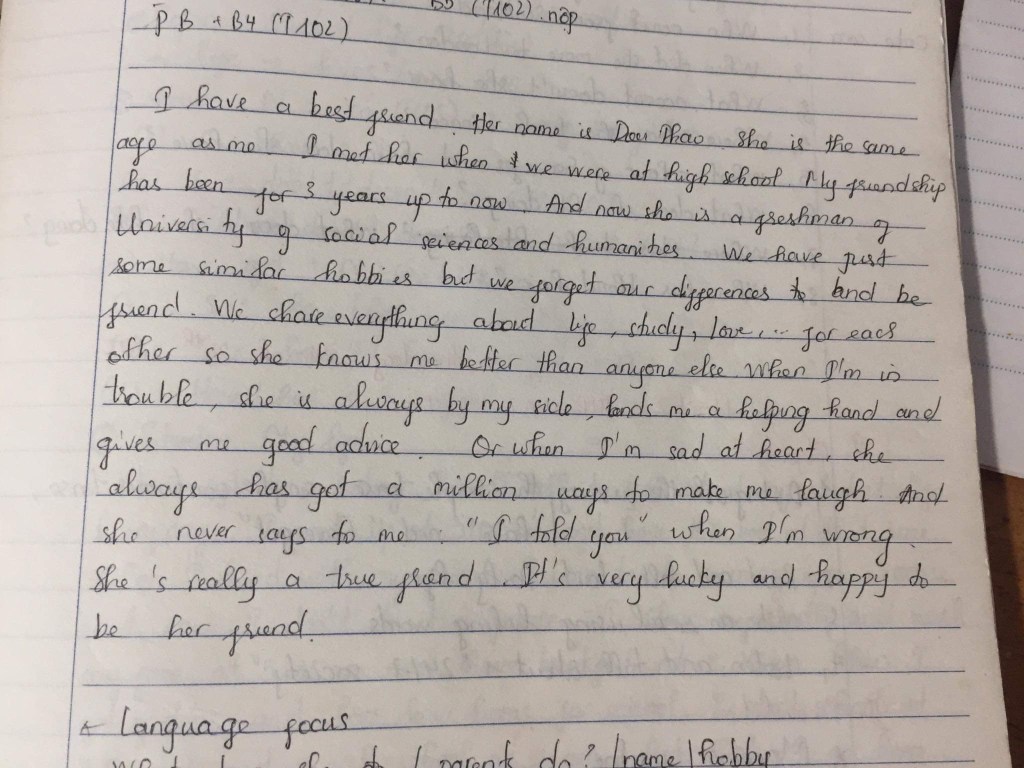 B5 (T102). nộp
PB + B4 (T102)
I have a best friend. Her name is Dieu Thao She is the same
age as me I met her when we were at high school. My friendship
has been for 3 years up to now. And now she is a freshman of
University of social sciences and humanities. We have just
some similar hobbies but we forget our differences and be
friend. We share everything about life, study, love,... for each
other so she knows me better than anyone else When I'm in
trouble, she is always by my side, lends me a helping hand and
gives me good advice. Or when I'm sad at heart, she
always has got a million ways to make me laugh. And
she never says to me: "I told you" when I'm wrong.
She's really a true friend. It's very lucky and happy to
be her friend.
← Language focus
parent do? / name / hobby